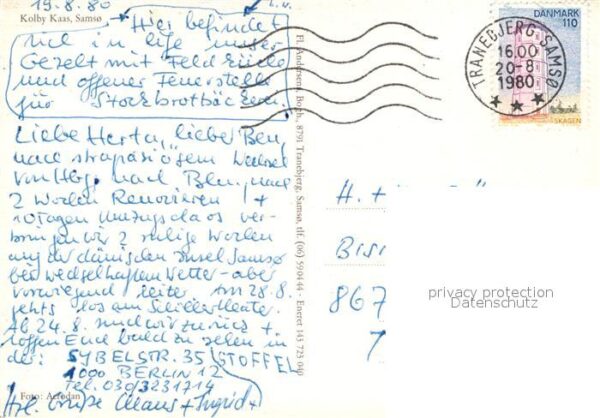 19.8.80
Kolby Kaas, Samsø
Hier befindet
sich in life unser
Gezelt mit Feldküche
und offener Feuerstelle
für Stockbrotbäckerei.
Liebe Herta, lieber Ben,
nach strapaziösem Wechsel
von Hbg. nach Bln., nach
2 Wochen Renovieren +
10 Tagen Umzugschaos ver-
bringen wir 2 ruhige Wochen
auf der dänischen Insel Samsø
bei wechselhaftem Wetter - aber
vorwiegend heiter. Am 28.8.
gehts los am Schillertheater.
Ab 24.8. sind wir zurück +
hoffen Euch bald zu sehen in
der: SYBELSTR. 35 (STOFFEL)
1000 BERLIN 12
Tel. 030/3231714
Foto: Aerodan
Hzl. Grüße Claus + Ingrid +
Fl. Andersens Bogh., 8791 Tranebjerg, Samsø, tlf. (06) 59 04 44 - Eneret 143 723 040
DANMARK
110
SKAGEN
TRANEBJERG SAMSØ
16.00
20-8
1980
H.
BISI
867
7
privacy protection
Datenschutz